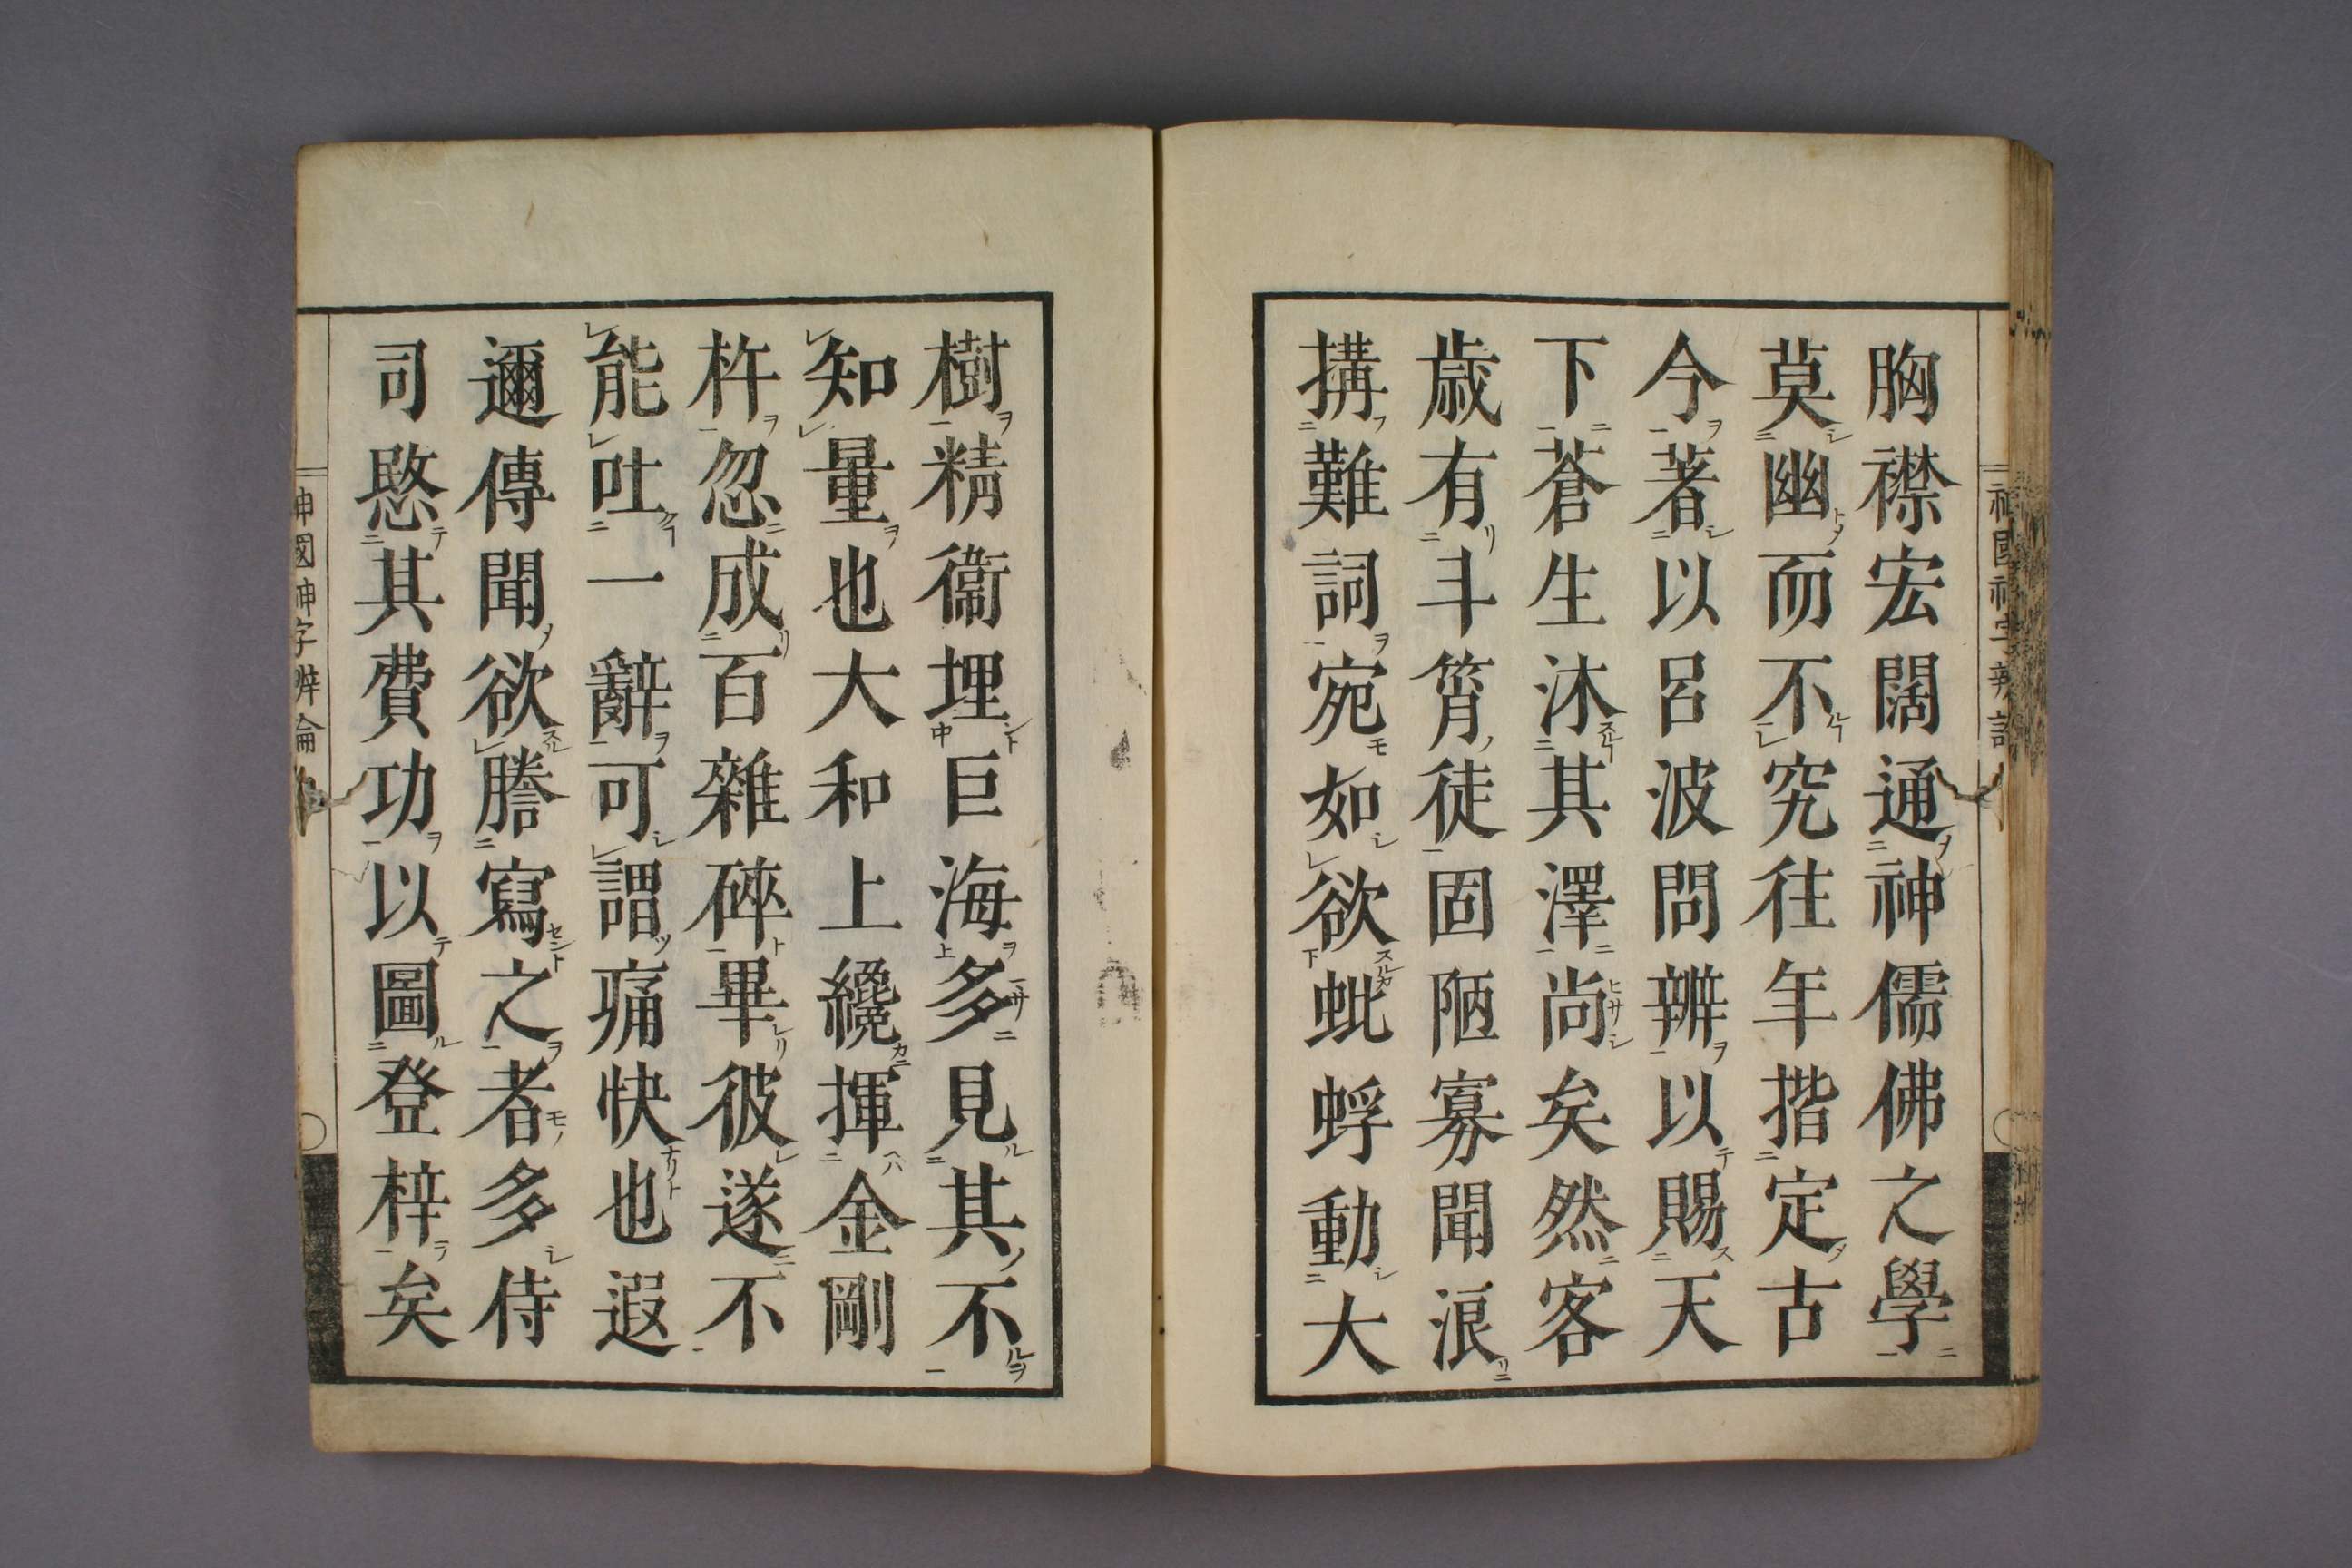 胸襟宏闊通神儒佛之學
莫幽而不究往年揩定古
今著以呂波問辨以賜天
下蒼生沐其澤尚矣然客
歳有斗筲徒固陋寡聞浪
搆難詞宛如欲蚍蜉動大
樹精衞埋巨海多見其不
知量也大和上纔揮金剛
杵忽成百雜碎畢彼遂不
能吐一辭可謂痛快也遐
邇傳聞欲謄寫之者多侍
司愍其費功以圖登梓矣
神國神字辨論